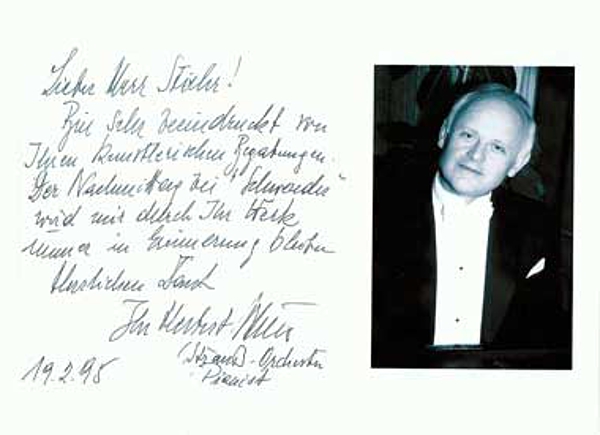 Lieber Herr Stöehr!
Bin sehr beeindruckt von
Ihren künstlerischen Begabungen.
Der Nachmittag bei "Schroeder"
wird mir durch Ihr Werk
immer in Erinnerung bleiben
Herzlichen Dank
Ihr Herbert
(Strauß-Orchester
Pianist
19.2.95